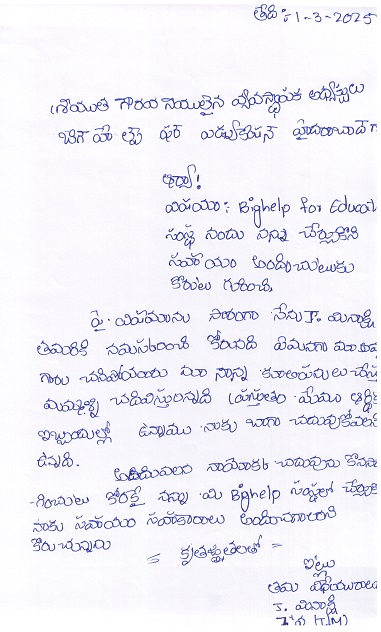 తేది :- 1-3-2025
శ్రీయుత గౌరవనీయులైన వ్యవస్థాపక అధ్యక్షులు
బిగ్ హెల్ప్ ఫర్ ఎడ్యుకేషన్ హైదరాబాద్
ఆర్యా!
విషయం : Bighelp for Educati
సంస్థ నందు నన్ను చేర్చుకొని
సహాయం అందించుటకు
కోరుట గురించి.
పై విషయమును సారంగా నేను J. మీనాక్షి
తమరికి నమస్కరించి కోరునది ఏమనగా మా
గారు చనిపోయారు మా నాన్న కూలిపనులు చేస్తు
మమ్మల్ని చదివిస్తున్నది ప్రస్తుతం మేము ఆర్థిక
ఇబ్బందుల్లో ఉన్నాము నాకు బాగా చదువుకోవాలని
ఉన్నది.
అందువలన నాయొక్క చదువును కొనసా
-గించుట కొరకై నన్ను మీ Bighelp సంస్థలో చేర్చు
నాకు సహాయం సహకారాలు అందించగలరని
కోరుచున్నాను
= కృతజ్ఞతలతో =
ఇట్లు
తమ విధేయురాలు
J. మీనాక్షి
(T/M)